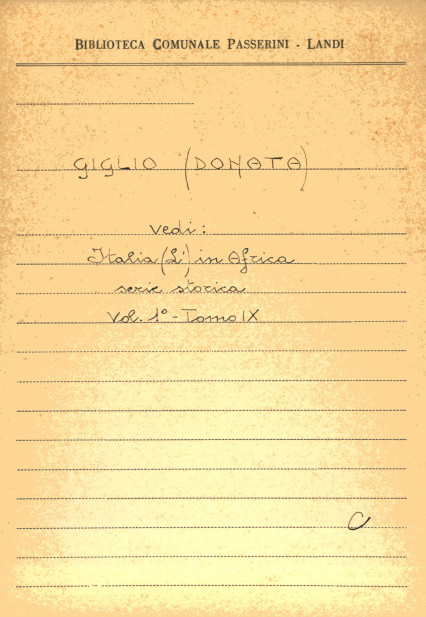 BIBLIOTECA COMUNALE PASSERINI - LANDI
GIGLIO (DONATA)
Vedi:
Italia (L') in Africa
serie storica
Vol. 1° - Tomo IX
C